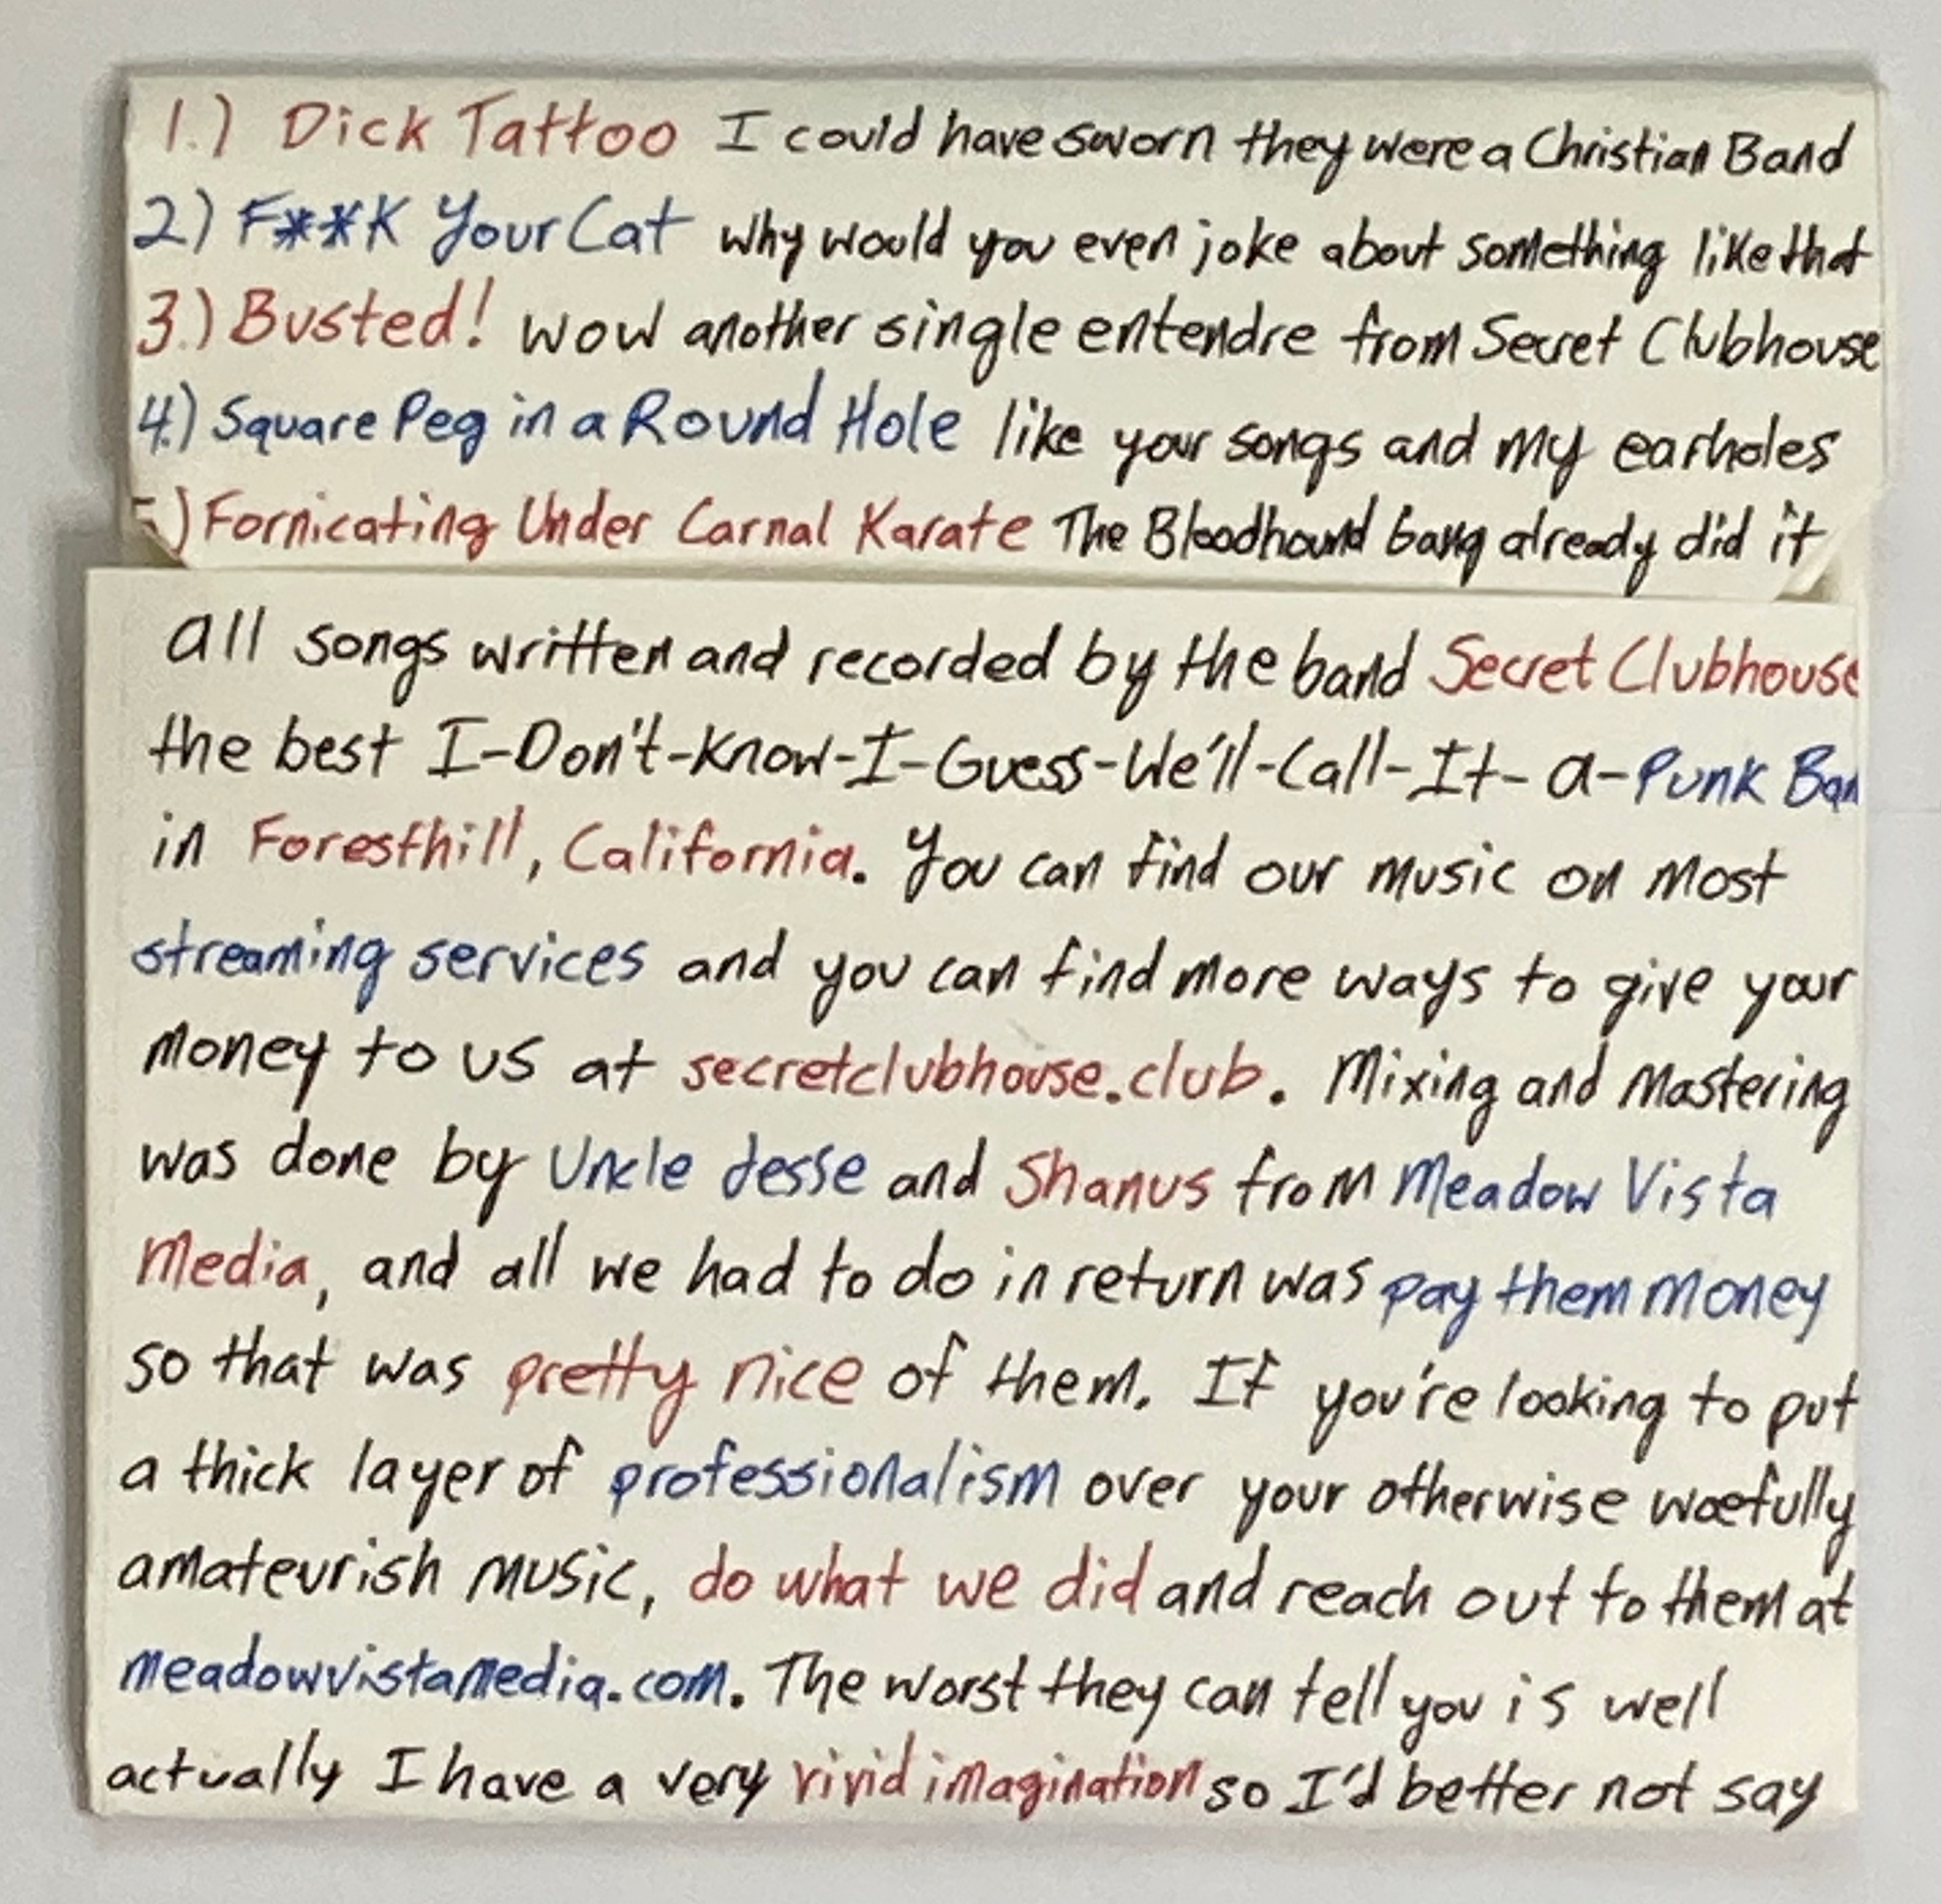 1.) Dick Tattoo I could have sworn they were a Christian Band
2) F**K Your Cat why would you even joke about something like that
3.) Busted! wow another single entendre from Secret Clubhouse
4.) Square Peg in a Round Hole like your songs and my earholes
5) Fornicating Under Carnal Karate The Bloodhound Gang already did it
all songs written and recorded by the band Secret Clubhouse
the best I-Don't-Know-I-Guess-We'll-Call-It-a-Punk Ban
in Foresthill, California. You can find our music on most
streaming services and you can find more ways to give your
money to us at secretclubhouse.club. Mixing and Mastering
was done by Uncle Jesse and Shanus from Meadow Vista
Media, and all we had to do in return was pay them money
so that was pretty nice of them. If you're looking to put
a thick layer of professionalism over your otherwise woefully
amateurish music, do what we did and reach out to them at
meadowvistamedia.com. The worst they can tell you is well
actually I have a very vivid imagination so I'd better not say